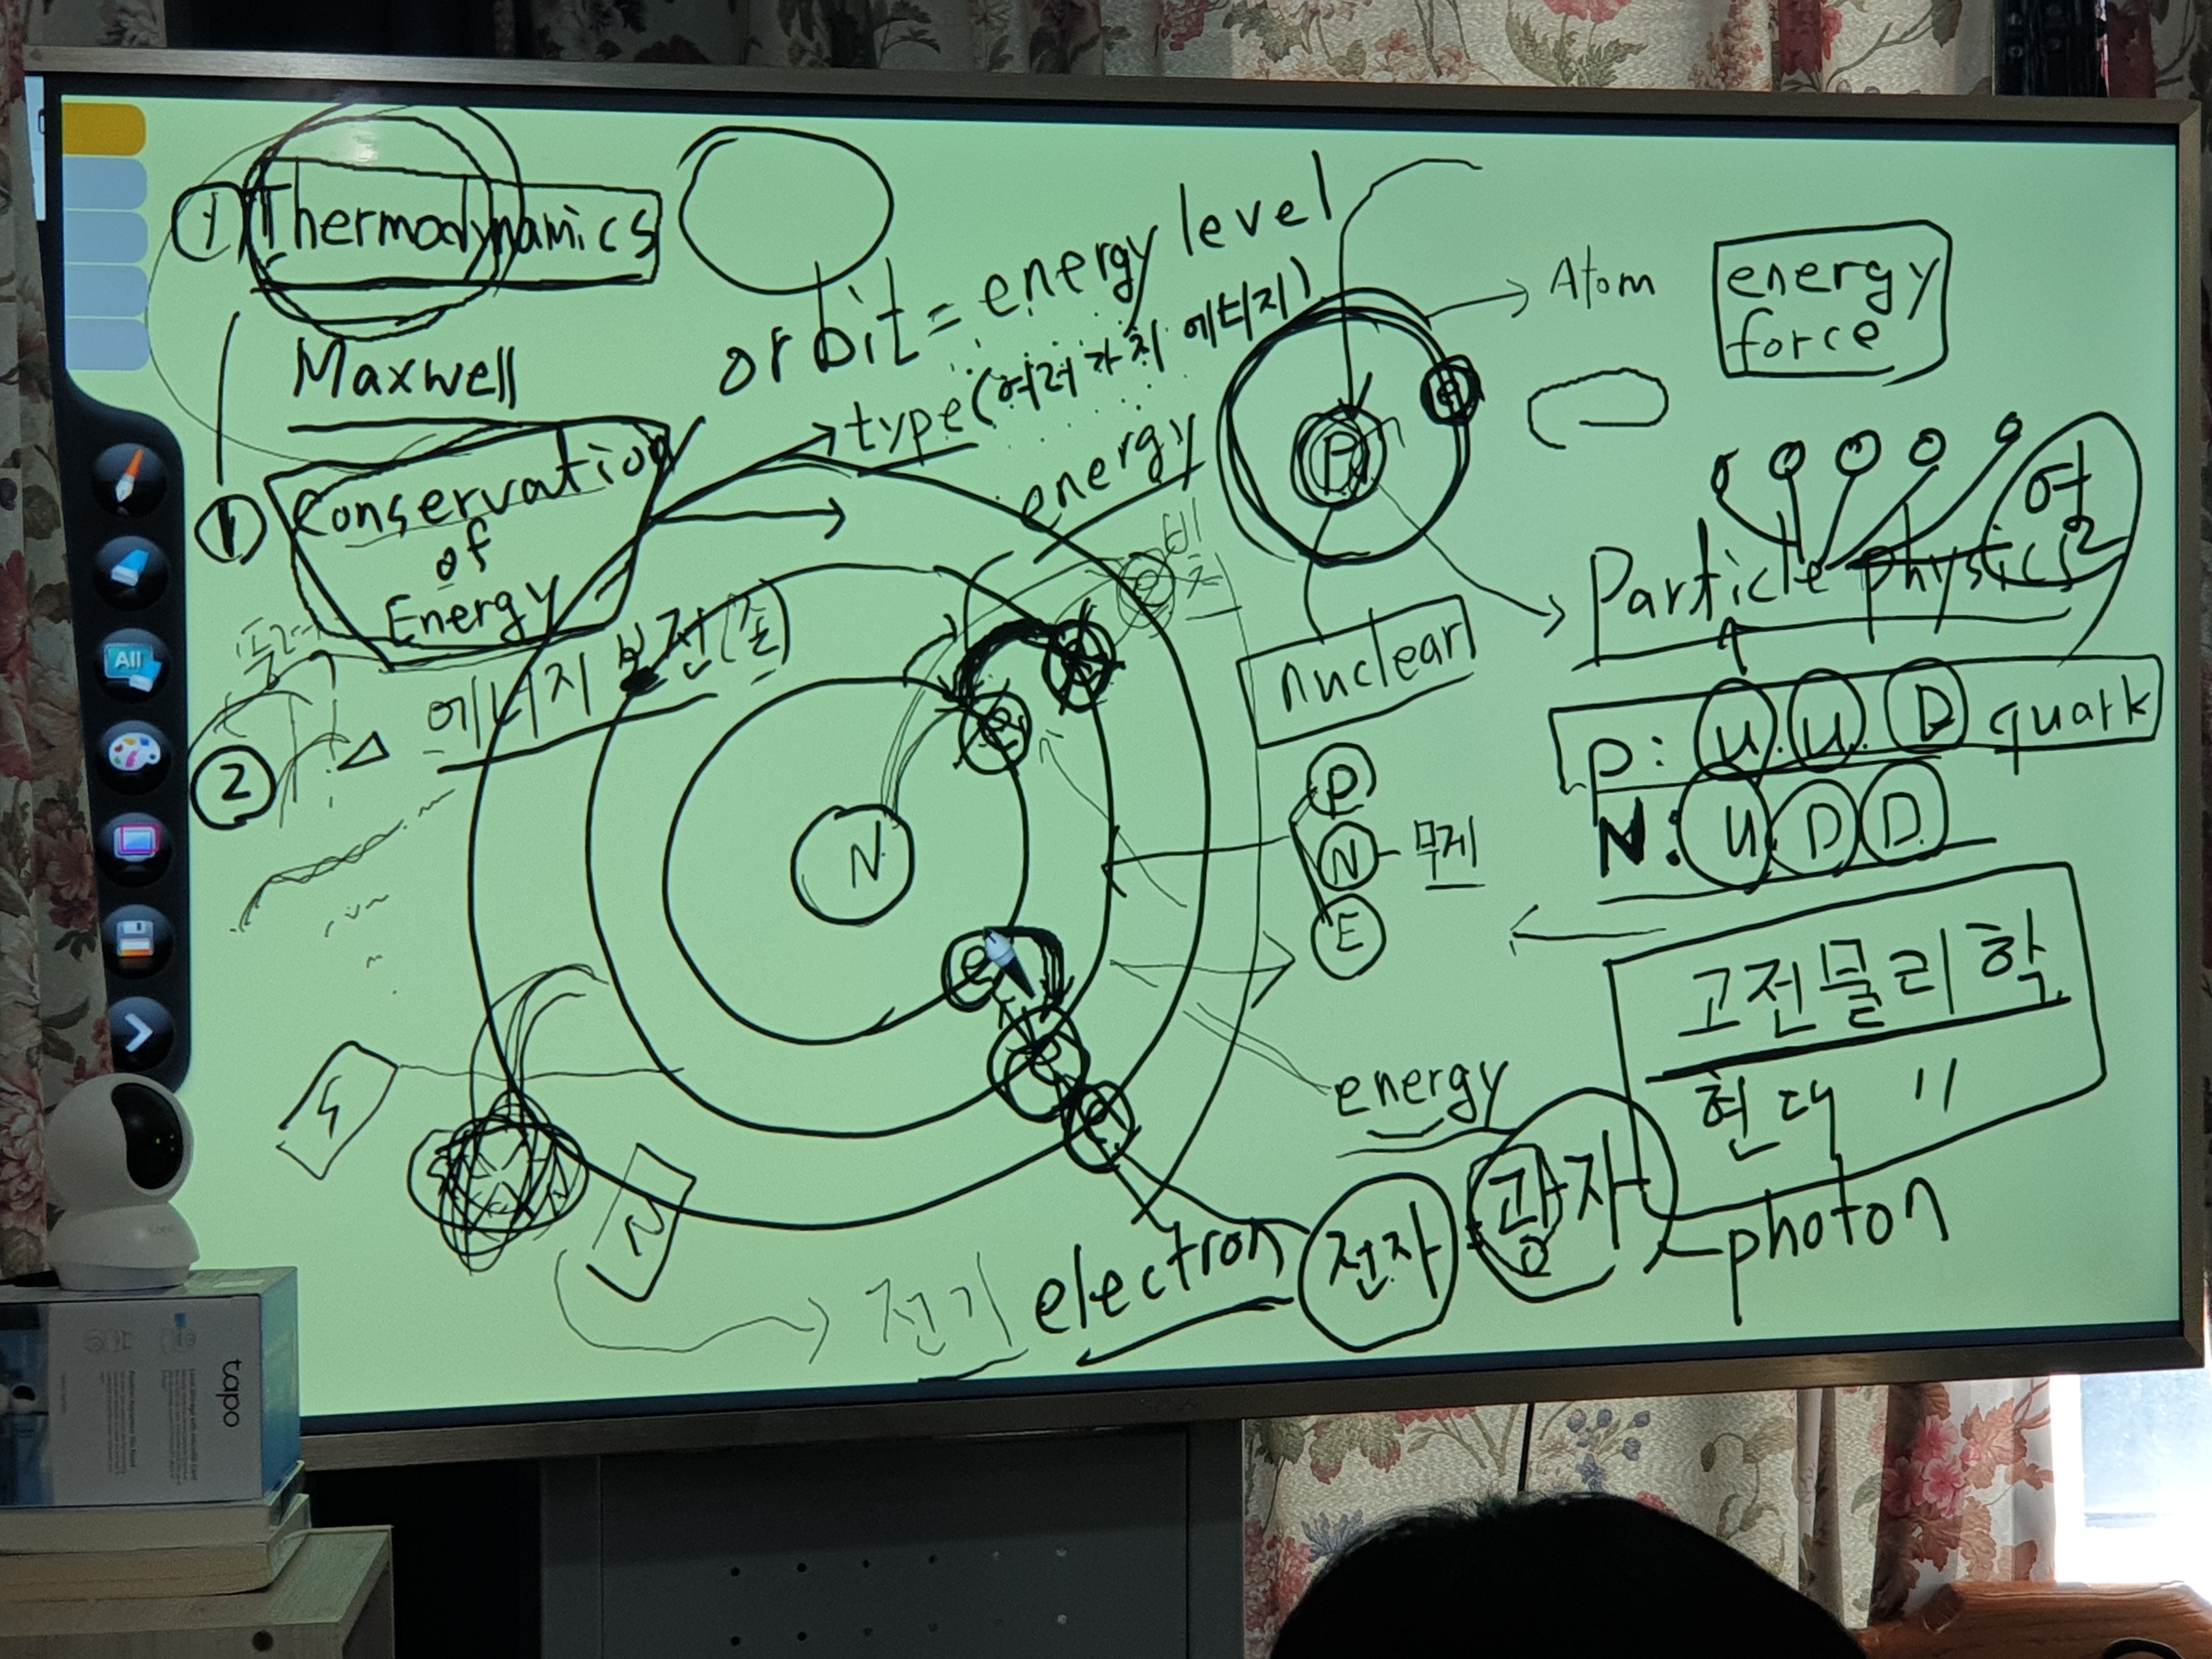 1 Thermodynamics
Maxwell
1 Conservation
of
Energy
에너지 보전(존)
2
orbit = energy level
type (여러가지 에너지)
energy
Atom
energy
force
P
e
Particle physics
nuclear
P: U U D quark
N: U D D
P
N - 무게
E
N
e
e
e
고전물리학
현대 "
energy
광자
photon
전자
electron
전기
S
N
All
tapo